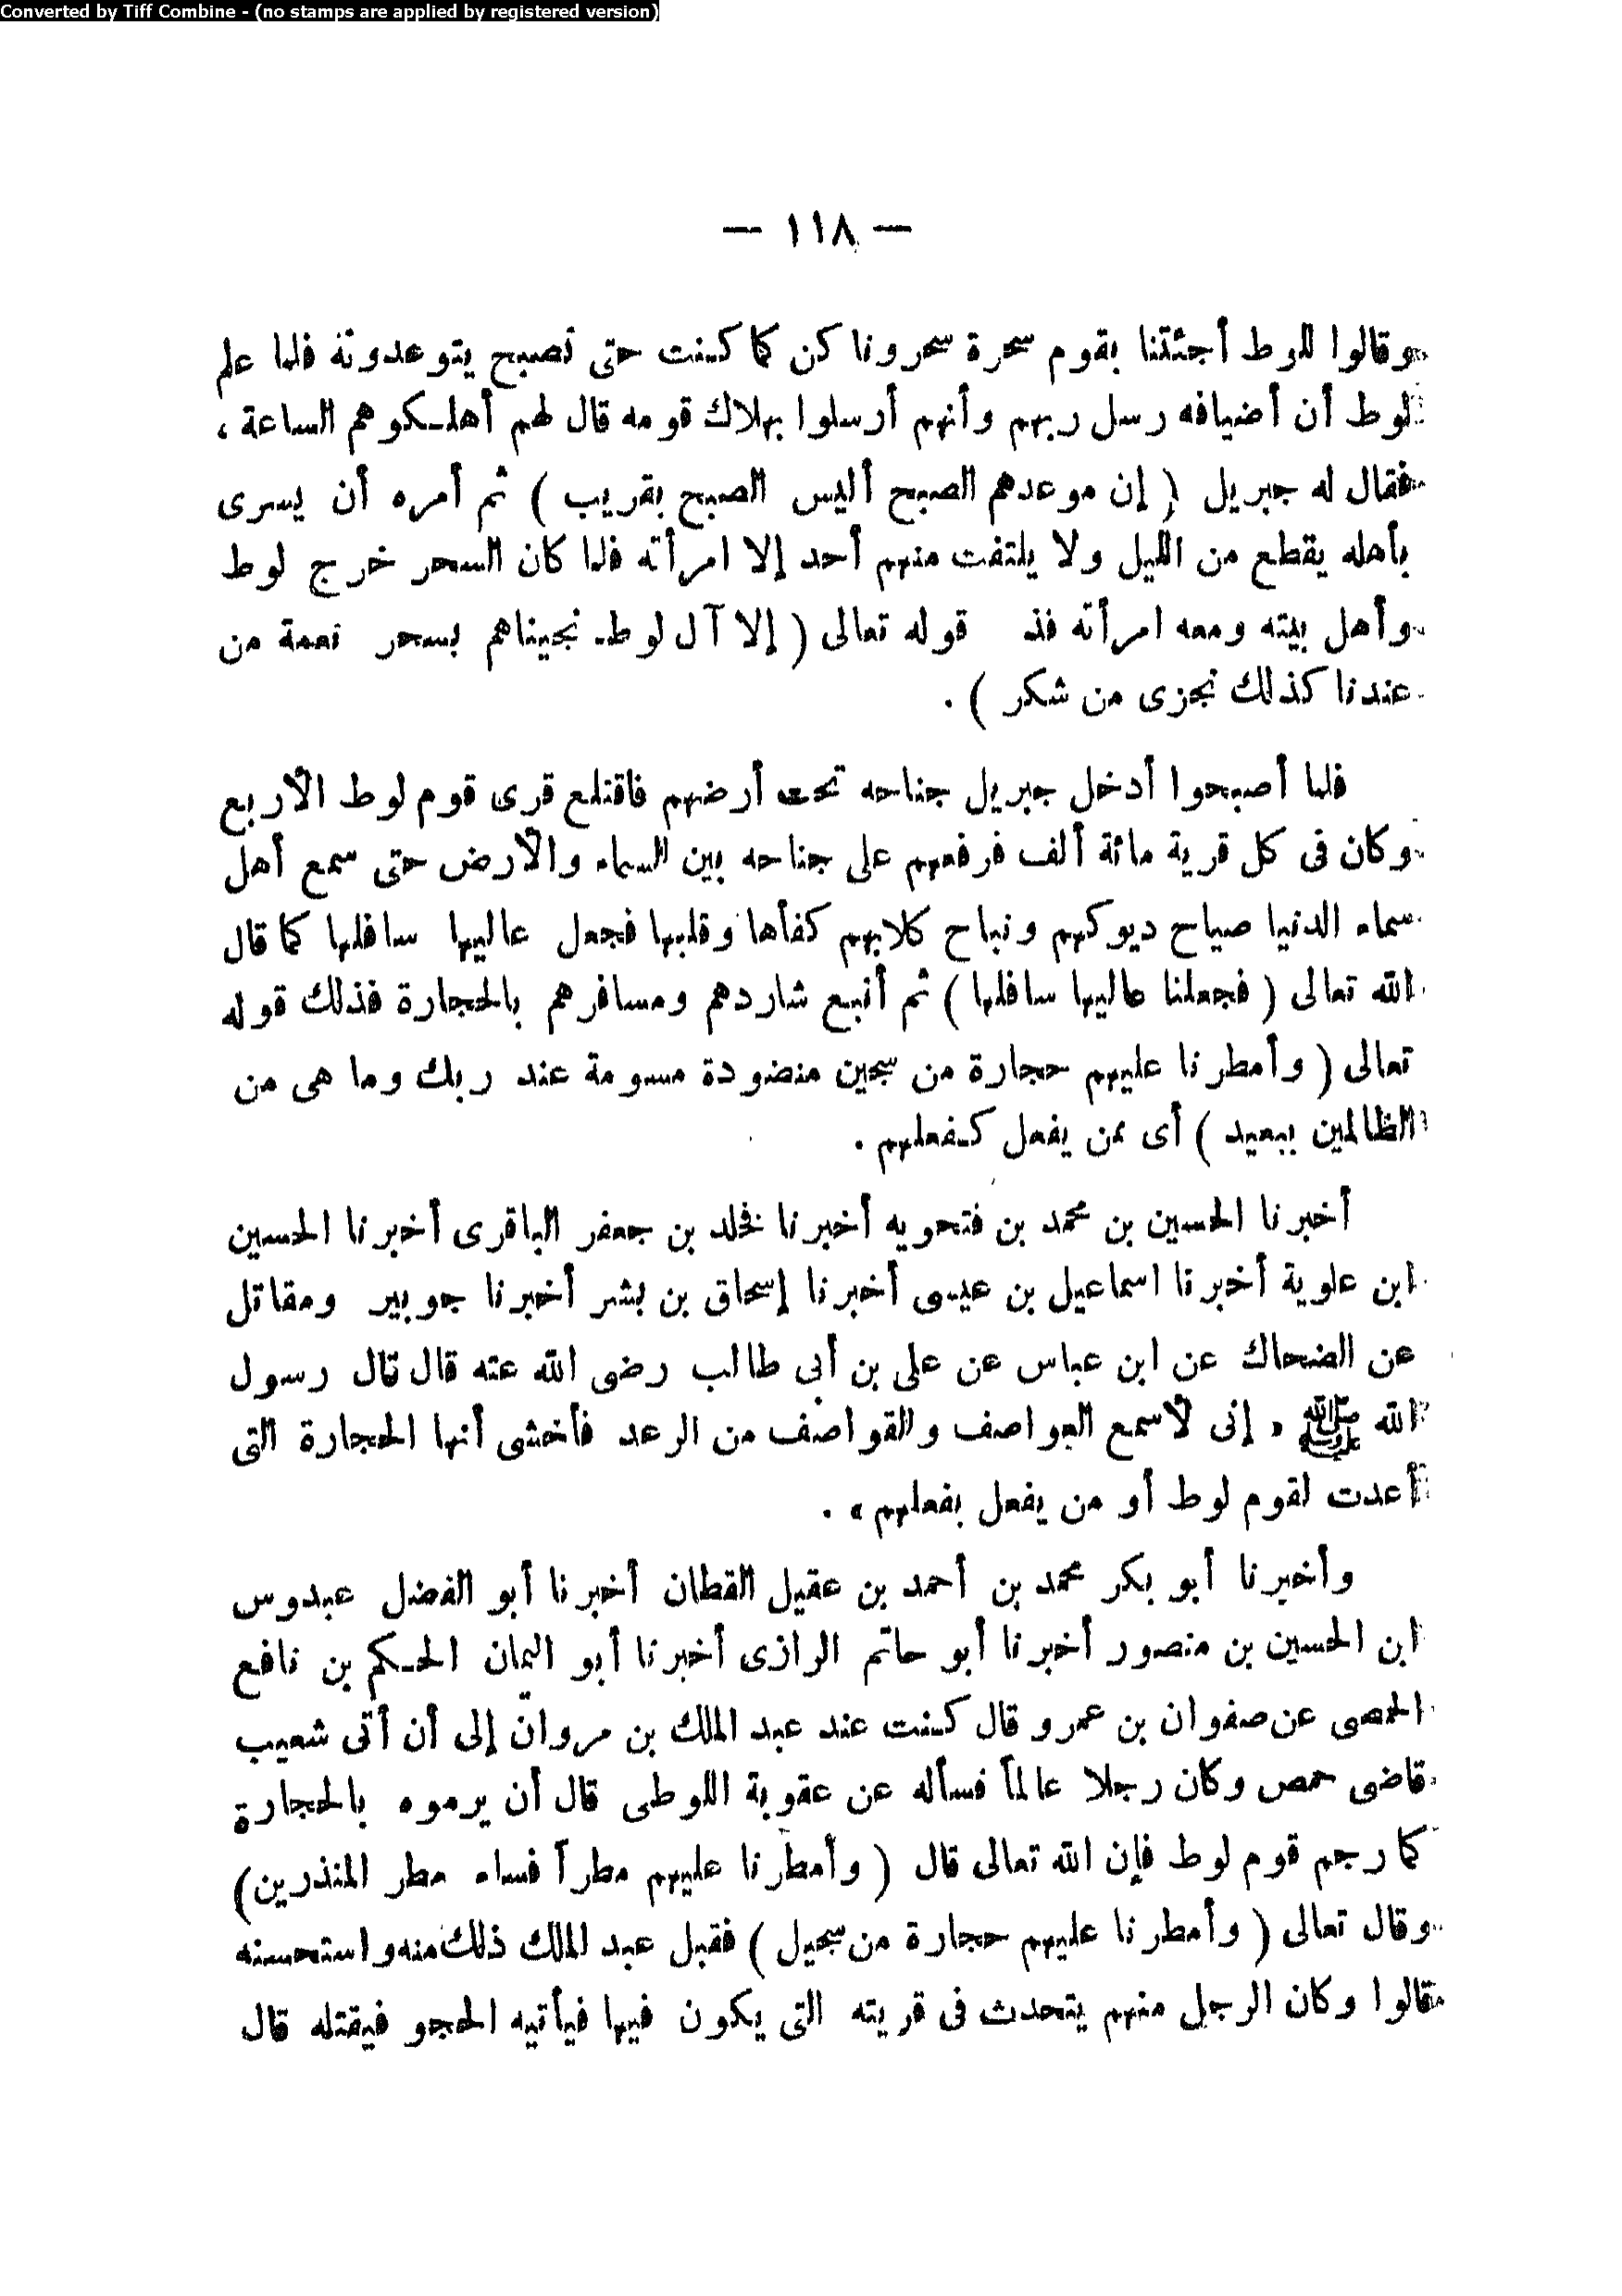 Converted by Tiff Combine - (no stamps are applied by registered version)
— ١١٨ —
وقالوا للوط أجئتنا بقوم سحرة سحرونا كن كما كنت حتى تصبح يتوعدونه فلما علم
لوط أن أضيافه رسل ربهم وأنهم أرسلوا بهلاك قومه قال لهم أهلكوهم الساعة ،
فقال له جبريل ( إن موعدهم الصبح أليس الصبح بقريب ) ثم أمره أن يسرى
بأهله يقطع من الليل ولا يلتفت منهم أحد إلا امرأته فلما كان السحر خرج لوط
وأهل بيته ومعه امرأته فذ قوله تعالى ( إلا آل لوط نجيناهم بسحر نعمة من
عندنا كذلك نجزى من شكر ) .
فلما أصبحوا أدخل جبريل جناحه تحت أرضهم فاقتلع قرى قوم لوط الأربع
وكان فى كل قرية مائة ألف فرفعهم على جناحه بين السماء والأرض حتى سمع أهل
سماء الدنيا صياح ديوكهم ونباح كلابهم كفأها وقلبها فجعل عاليها سافلها كما قال
الله تعالى ( فجعلنا عاليها سافلها ) ثم أتبع شاردهم ومسافرهم بالحجارة فذلك قوله
تعالى ( وأمطرنا عليهم حجارة من سجين منضودة مسومة عند ربك وما هى من
الظالمين ببعيد ) أى ممن يفعل كفعلهم .
أخبرنا الحسين بن محمد بن فتحويه أخبرنا مخلد بن جعفر الباقرى أخبرنا الحسين
ابن علوية أخبرنا اسماعيل بن عيسى أخبرنا إسحاق بن بشر أخبرنا جويبر ومقاتل
عن الضحاك عن ابن عباس عن على بن أبى طالب رضى الله عنه قال قال رسول
الله ﷺ « إنى لأسمع العواصف والقواصف من الرعد فأخشى أنها الحجارة التى
أعدت لقوم لوط أو من يفعل بفعلهم » .
وأخبرنا أبو بكر محمد بن أحمد بن عقيل القطان أخبرنا أبو الفضل عبدوس
ابن الحسين بن منصور أخبرنا أبو حاتم الرازى أخبرنا أبو اليمان الحكم بن نافع
الحمصى عن صفوان بن عمرو قال كنت عند عبد الملك بن مروان إلى أن أتى شعيب
قاضى حمص وكان رجلا عالماً فسأله عن عقوبة اللوطى قال أن يرموه بالحجارة
كما رجم قوم لوط فإن الله تعالى قال ( وأمطرنا عليهم مطراً فساء مطر المنذرين)
وقال تعالى ( وأمطرنا عليهم حجارة من سجيل ) فقبل عبد الملك ذلك منه واستحسنه
قالوا وكان الرجل منهم يتحدث فى قريته التى يكون فيها فيأتيه الحجو فيقتله قال